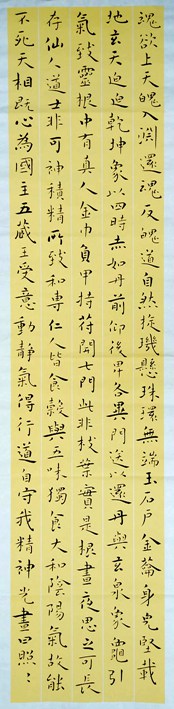 魂欲上天魄入淵還魂反魄道自然旋璣懸珠環無端玉石戶金籥身完堅載
地玄天迫迫乾坤象以四時赤如丹前仰後卑各異門送以還丹與玄泉象龜引
氣致靈根中有真人金巾負甲持符開七門此非枝葉實是根晝夜思之可長
存仙人道士非可神積精所致和專仁人皆食穀與五味獨食大和陰陽氣故能
不死天相既心為國主五藏王受意動靜氣得行道自守我精神光晝日照〻